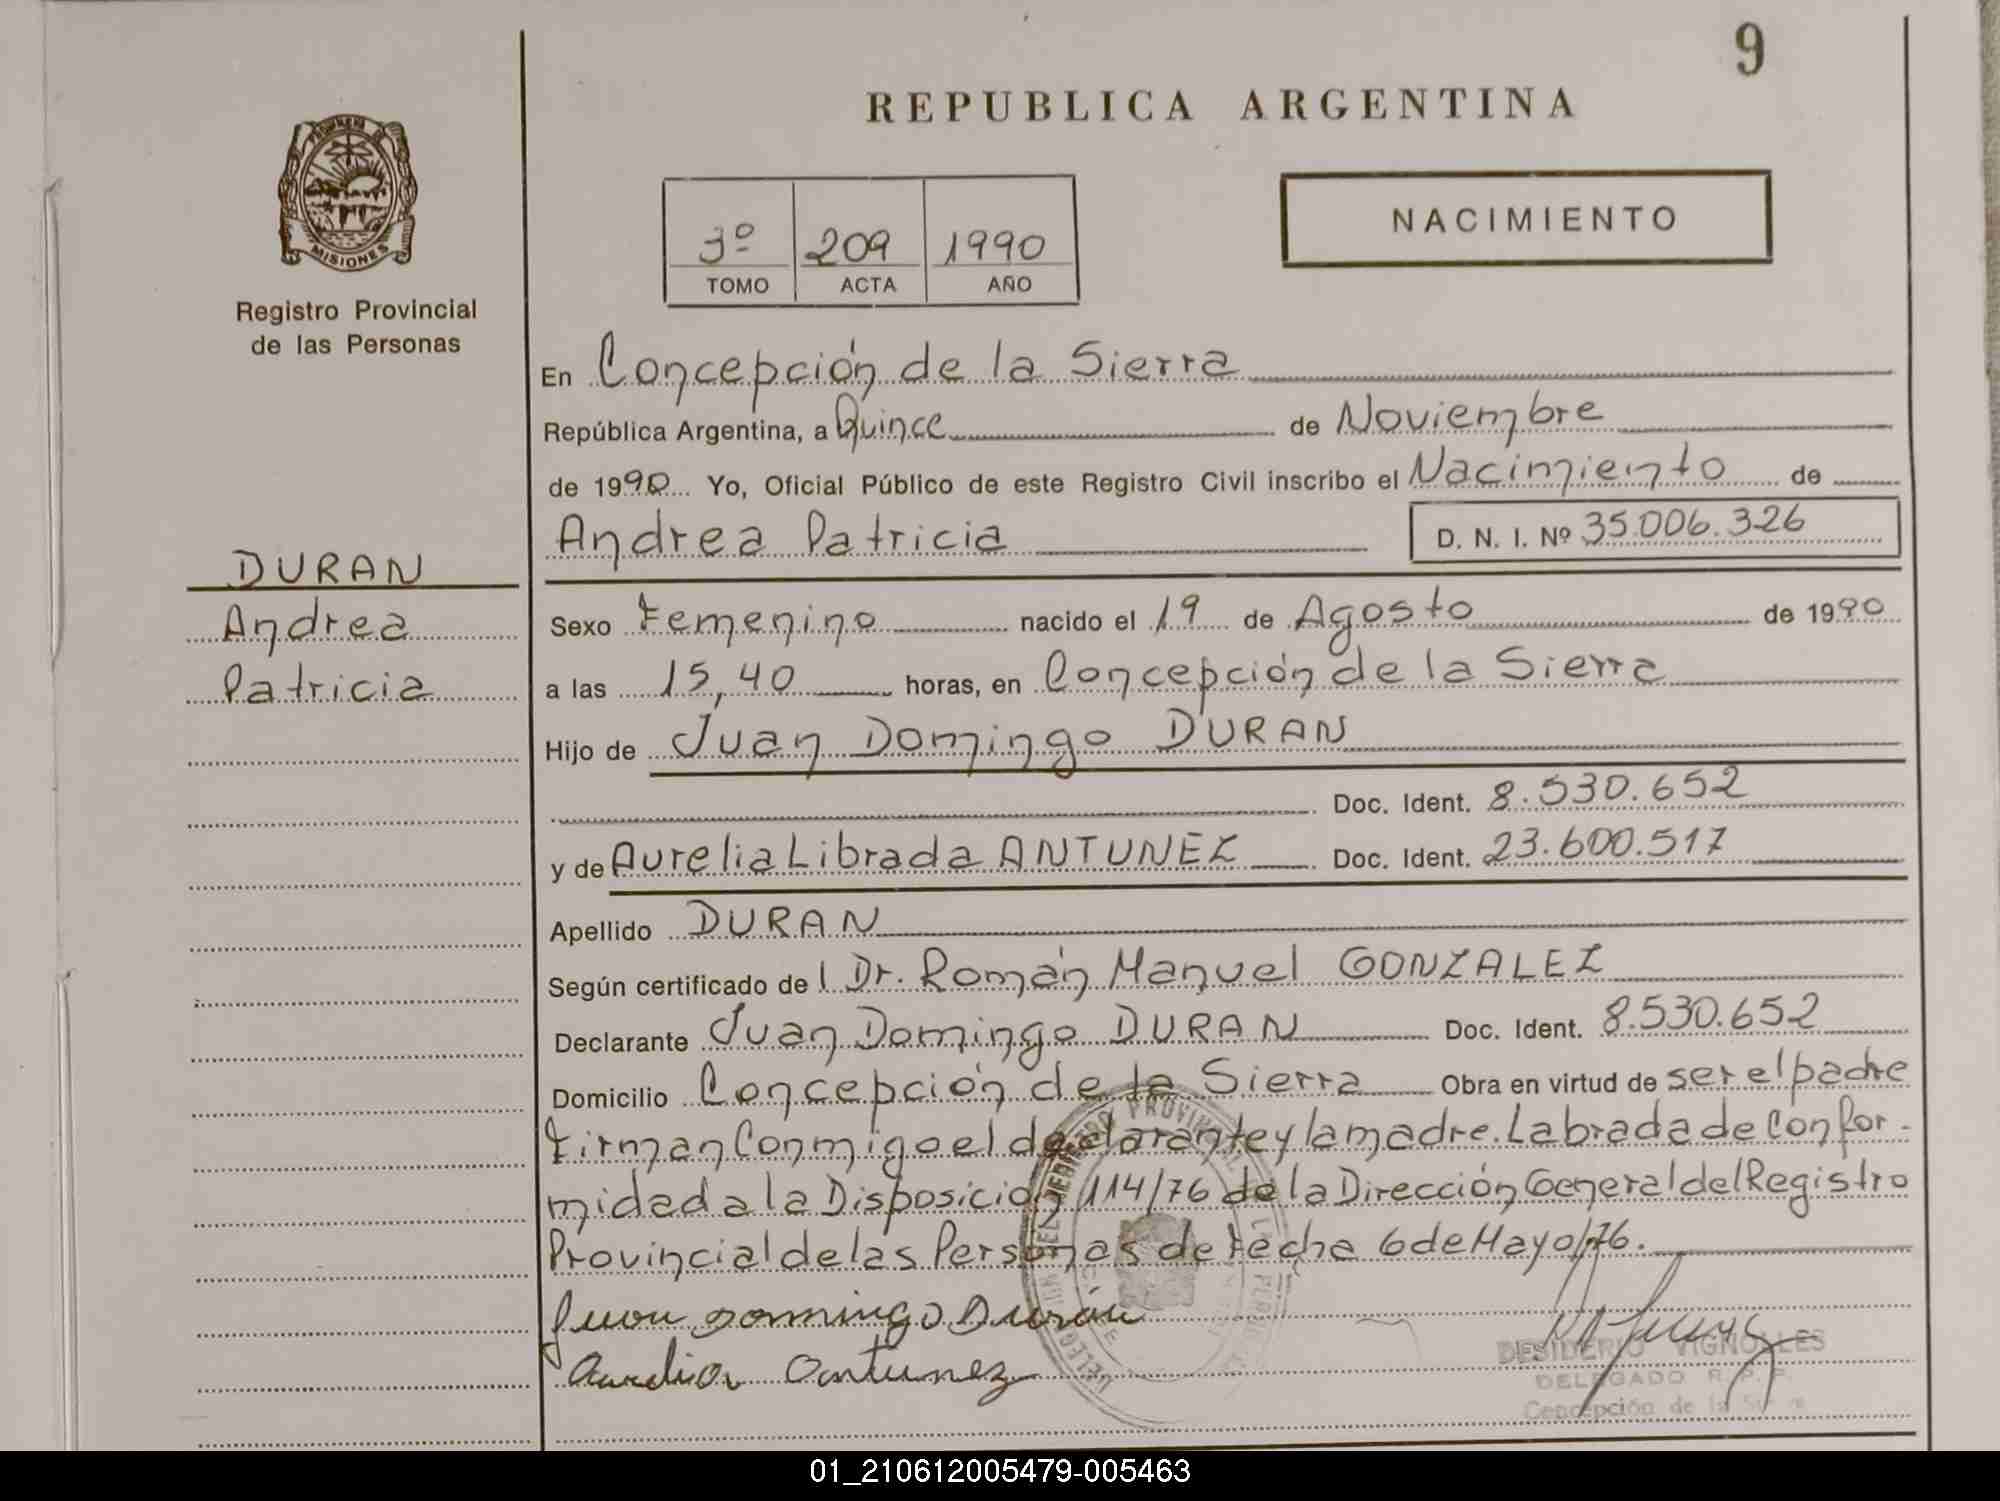 9
REPUBLICA ARGENTINA
MISIONES
Registro Provincial
de las Personas
3º 209 1990
TOMO ACTA AÑO
NACIMIENTO
En Concepción de la Sierra
República Argentina, a Quince de Noviembre
de 1990 Yo, Oficial Público de este Registro Civil inscribo el Nacimiento de
Andrea Patricia D. N. I. Nº 35.006.326
DURAN
Andrea
Patricia
Sexo Femenino nacido el 19 de Agosto de 1990
a las 15,40 horas, en Concepción de la Sierra
Hijo de Juan Domingo DURAN
Doc. Ident. 8.530.652
y de Aurelia Librada ANTUNEZ Doc. Ident. 23.600.517
Apellido DURAN
Según certificado de l Dr. Román Manuel GONZALEZ
Declarante Juan Domingo DURAN Doc. Ident. 8.530.652
Domicilio Concepción de la Sierra Obra en virtud de ser el padre
Firman Conmigo el declarante y la madre. Labrada de Confor-
midad a la Disposición 114/76 de la Dirección General del Registro
Provincial de las Personas de Fecha 6 de Mayo/76.
Juan Domingo Durán
Aurelia Antunez
DESIDERIO VIGNOLLES
DELEGADO R. P. P.
Concepción de la Sierra
01_210612005479-005463